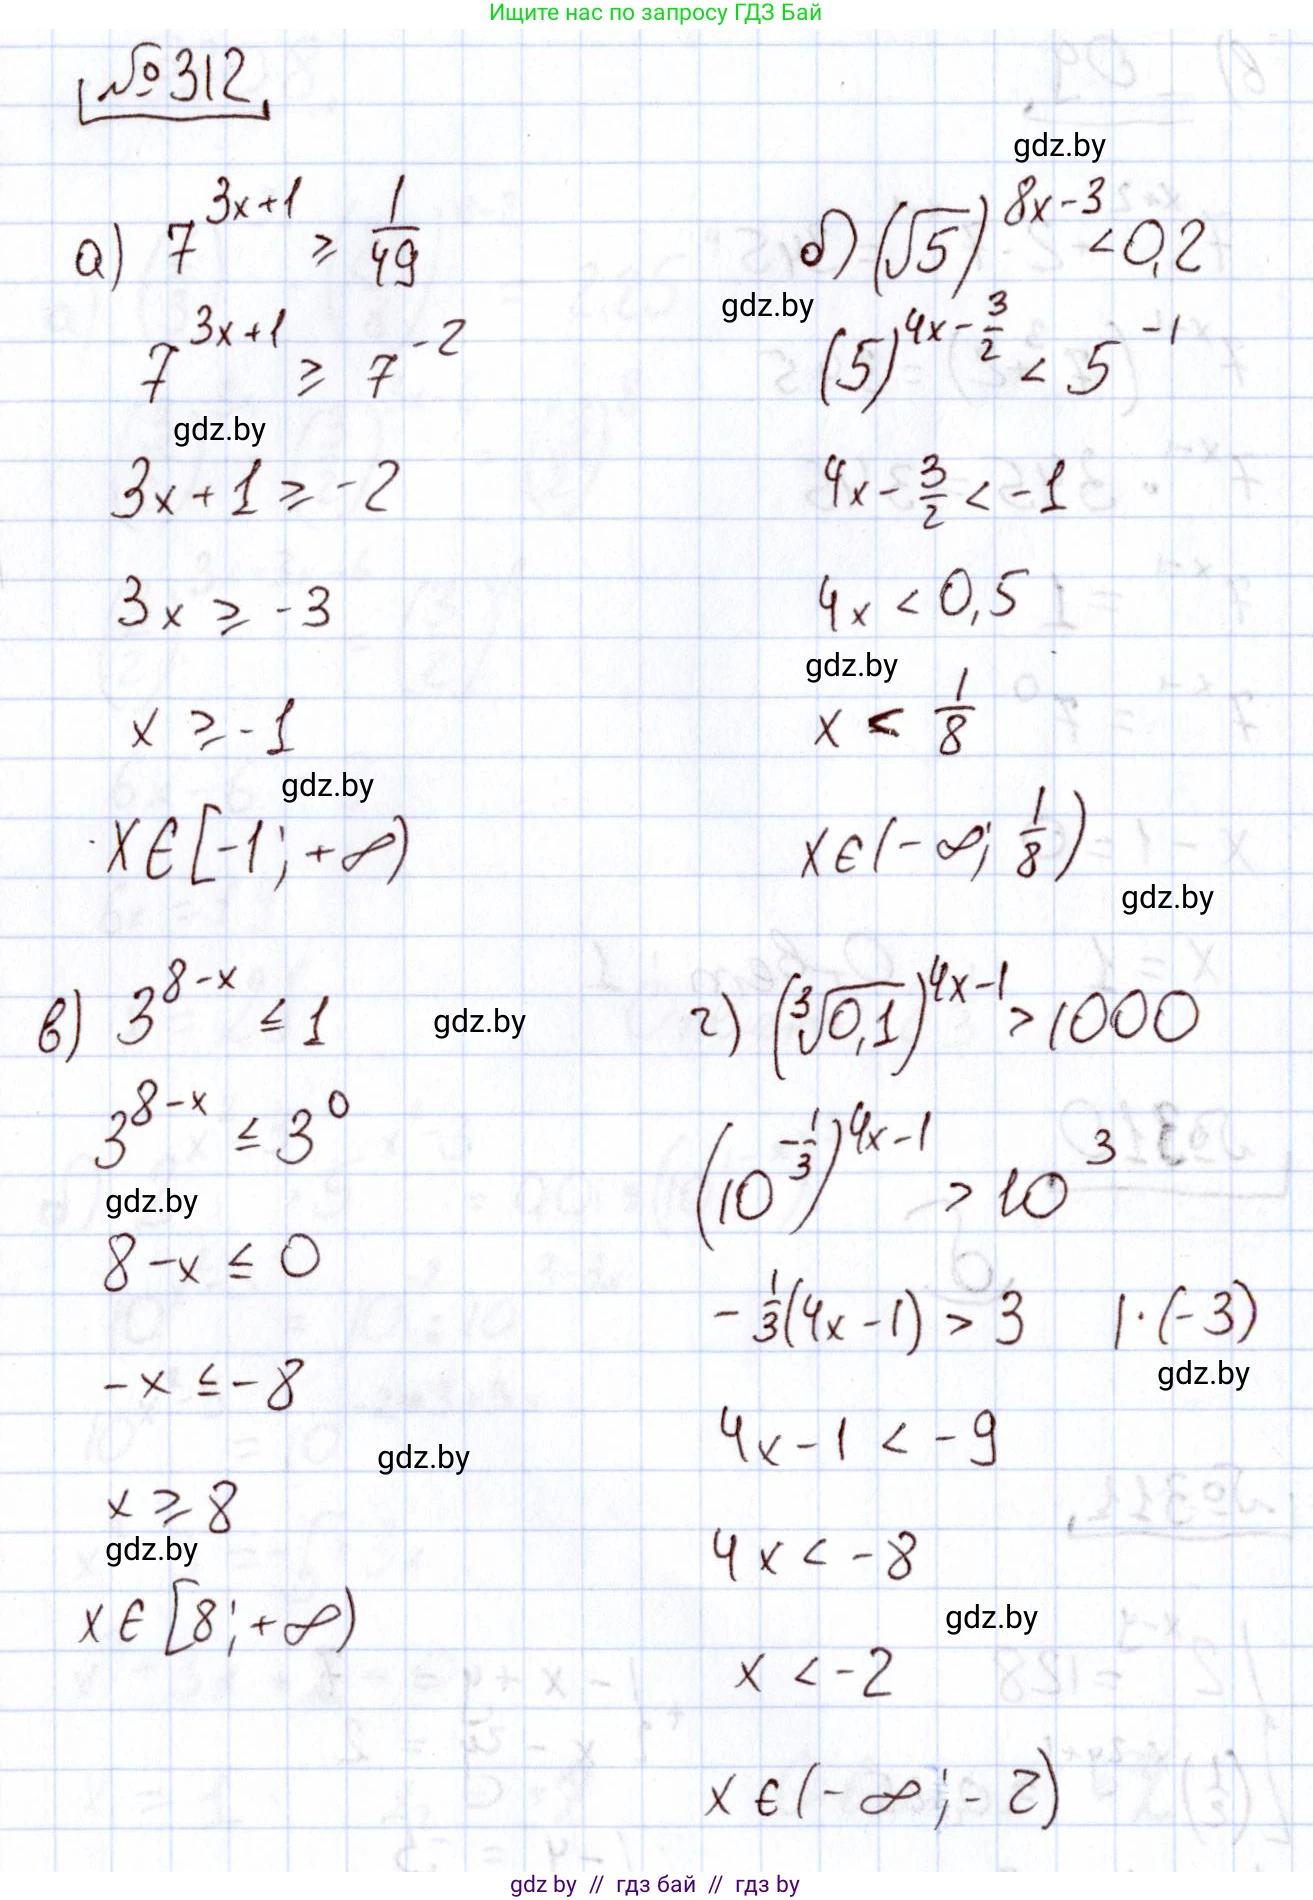 Ищите нас по запросу ГДЗ Бай
№ 312
gdz.by
а) 7^(3x+1) ≥ 1/49
7^(3x+1) ≥ 7^(-2)
gdz.by
3x+1 ≥ -2
3x ≥ -3
x ≥ -1
gdz.by
x ∈ [-1; +∞)
б) (√5)^(8x-3) < 0,2
gdz.by
(5)^(4x - 3/2) < 5^(-1)
4x - 3/2 < -1
4x < 0,5
gdz.by
x < 1/8
x ∈ (-∞; 1/8)
gdz.by
в) 3^(8-x) ≤ 1
gdz.by
3^(8-x) ≤ 3^0
gdz.by
8-x ≤ 0
-x ≤ -8
gdz.by
x ≥ 8
gdz.by
x ∈ [8; +∞)
г) (∛0,1)^(4x-1) > 1000
(10^(-1/3))^(4x-1) > 10^3
-1/3(4x-1) > 3 |·(-3)
gdz.by
4x-1 < -9
4x < -8
gdz.by
x < -2
x ∈ (-∞; -2)
gdz by // гдз бай // гдз by